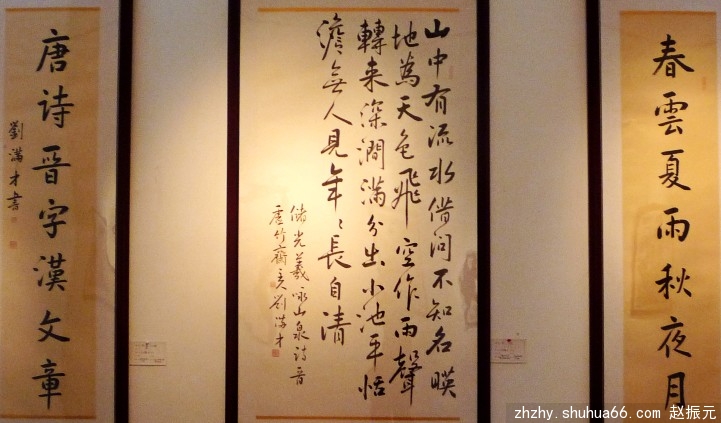 春雲夏雨秋夜月
山中有流水借問不知名暎
地為天色飛空作雨聲
轉来深澗滿分出小池平恬
澹無人見年〻長自清
儲光羲咏山泉詩
虛竹齋主劉滿才
唐詩晋字漢文章
劉滿才書
zhzhy.shuhua66.com 赵振元